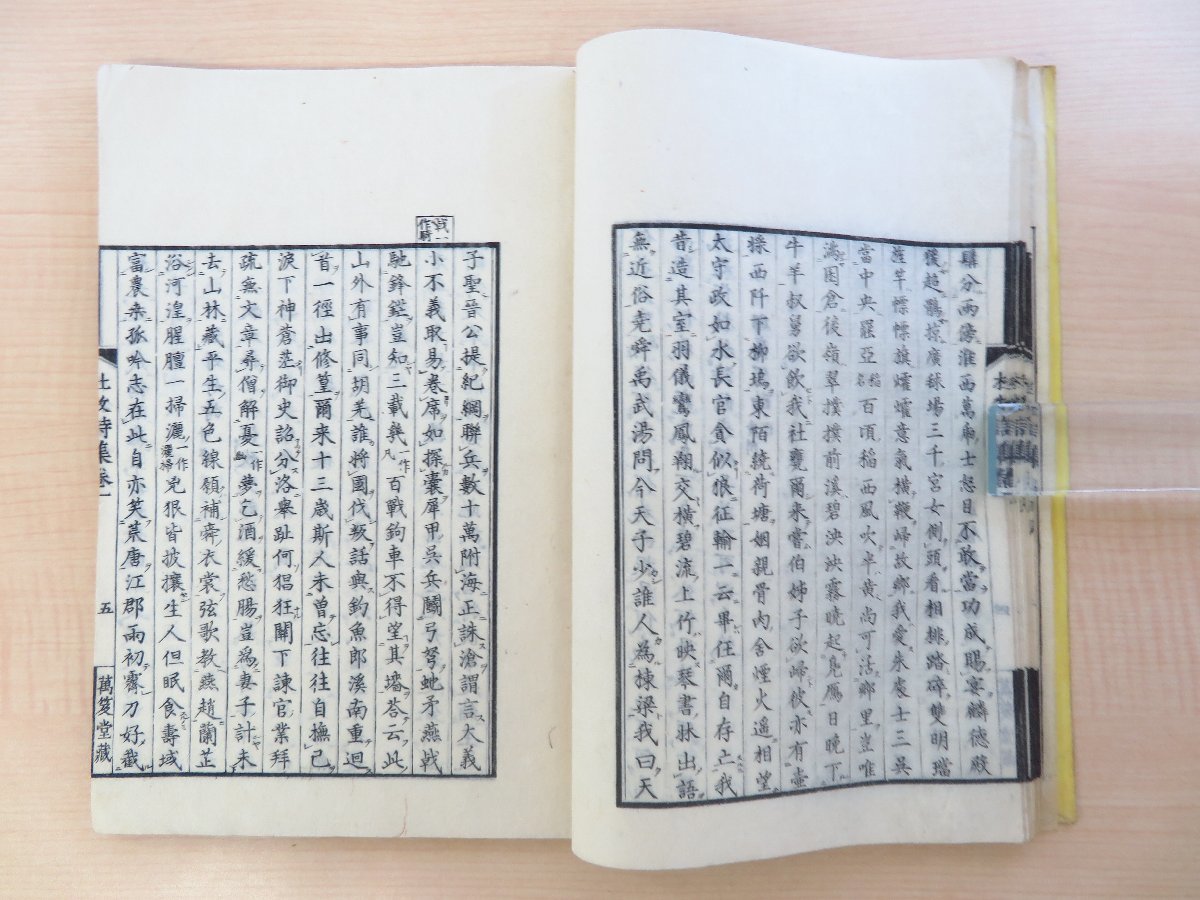 驤分兩海淮西萬虎士怒目不敢當功成賜宴麟德殿
猿超鶻掠廣毬場三千宮女側頭看相排踏碎雙明璫
旌竿幖幖旗㸌㸌意氣橫鞭歸故鄉我愛朱處士三吳
當中央罷亞稻名百頃稻西風吹半黃尚可活鄉里豈唯
滿囷倉後嶺翠撲撲前溪碧泱泱霧曉起鳧鴈日晚下
牛羊叔舅欲飲我社甕爾來嘗伯姊子欲歸彼亦有壺
漿西阡下柳塢東陌繞荷塘姻親骨肉舍煙火遥相望
太守政如水長官貪似狼征輸一云畢任爾自存亡我
昔造其室羽儀鸞鳳翔交橫碧流上竹映琴書牀出語
無近俗堯舜禹武湯問今天子少誰人為棟梁我曰天
戟一作騎
子聖晉公提紀綱聯兵數十萬附海正誅滄謂言大義
小不義取易卷席如探囊犀甲吳兵鬭弓弩蛇矛燕戟
馳鋒鋩豈知三載幾一作凡百戰鉤車不得望其墻答云此
山外有事同胡羌誰將國伐叛話與釣魚郎溪南重迴
首一徑出修篁爾来十三歲斯人未曾忘往往自撫已
淚下神蒼茫御史詔分洛舉趾何猖狂闕下諫官業拜
疏無文章尋僧解憂一作幽夢乞酒緩愁腸豈為妻子計未
去山林藏平生五色線願補舜衣裳弦歌教燕趙蘭芷
浴河湟腥膻一掃灑一作灑掃兇狠皆披攘生人但眠食壽域
富農桑孤吟志在此自亦笑荒唐江郡雨初霽刀好截
杜牧詩集卷一
五
萬笈堂藏